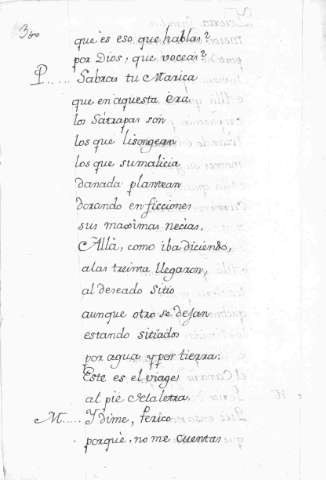 que es eso, que hablas?
por Dios, que voceas?
P...... Sabras tu Marica
que en aquesta era
los Sátrapas son
los que lisongean
los que su malicia
danada plantean
dorando en ficciones
sus maximas necias.
Allá, como iba diciendo,
a las treinta llegaron,
al deseado sitio
aunque otro se dejan
estando sitiados
por agua y por tierra.
Este es el viage
al pie de la letra.
M..... Y dime, Perico
porque no me cuentas